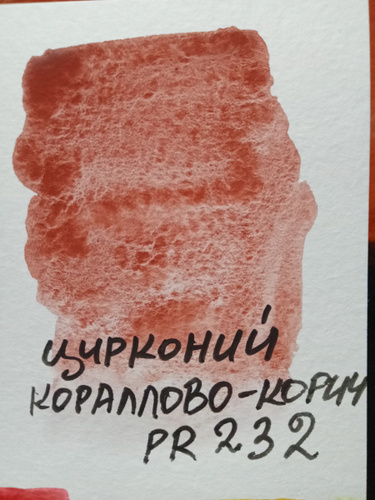 цирконий
кораллово-корич
PR 232